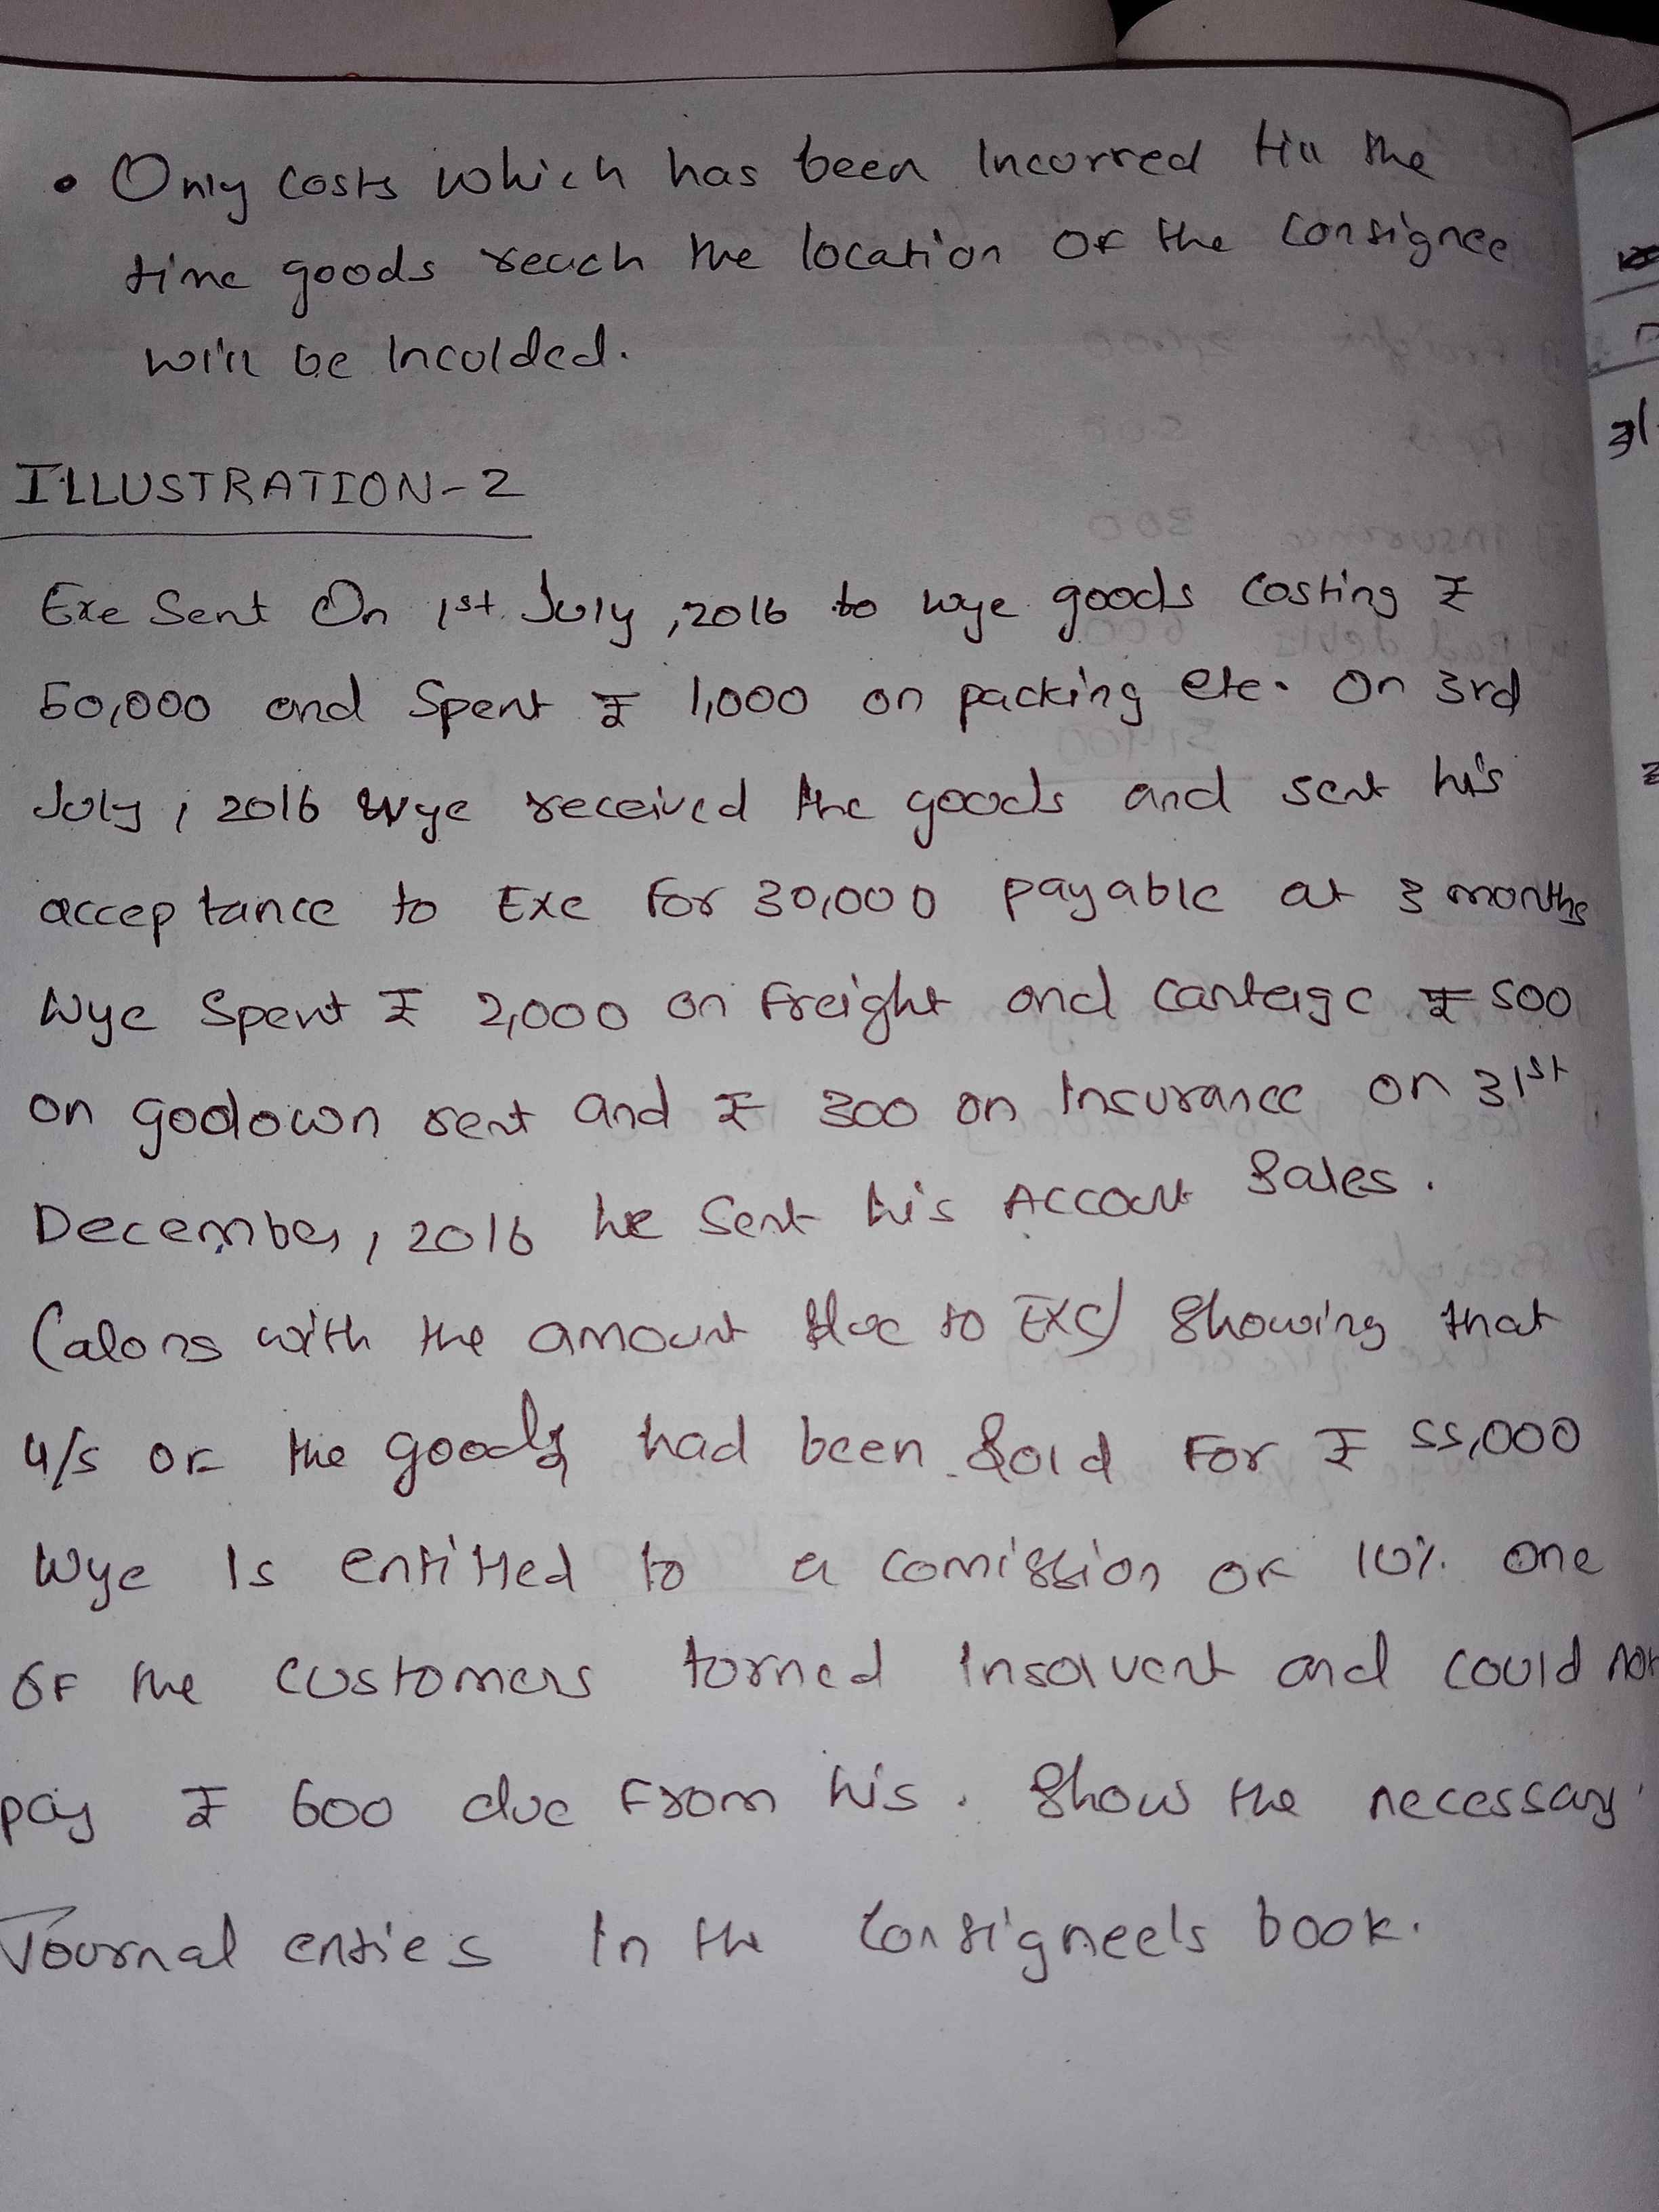 • Only costs which has been Incurred till the
time goods reach the location of the consignee
will be Inculded.
ILLUSTRATION-2
Exe Sent On 1st July, 2016 to wye goods costing ₹
50,000 and Spent ₹ 1,000 on packing etc. On 3rd
July, 2016 Wye received the goods and sent his
acceptance to Exe for 30,000 payable at 3 months
Wye Spent ₹ 2,000 on freight and cartage ₹ 500
on godown rent and ₹ 300 on Insurance on 31st
December, 2016 he Sent his Account Sales.
(alons with the amount due to Exe) Showing that
4/5 of the goods had been Sold For ₹ 55,000
Wye Is entitled to a comission of 10% One
OF the customers torned Insolvent and could not
pay ₹ 600 due From his. Show the necessary
Journal enties In the Consignee's book.